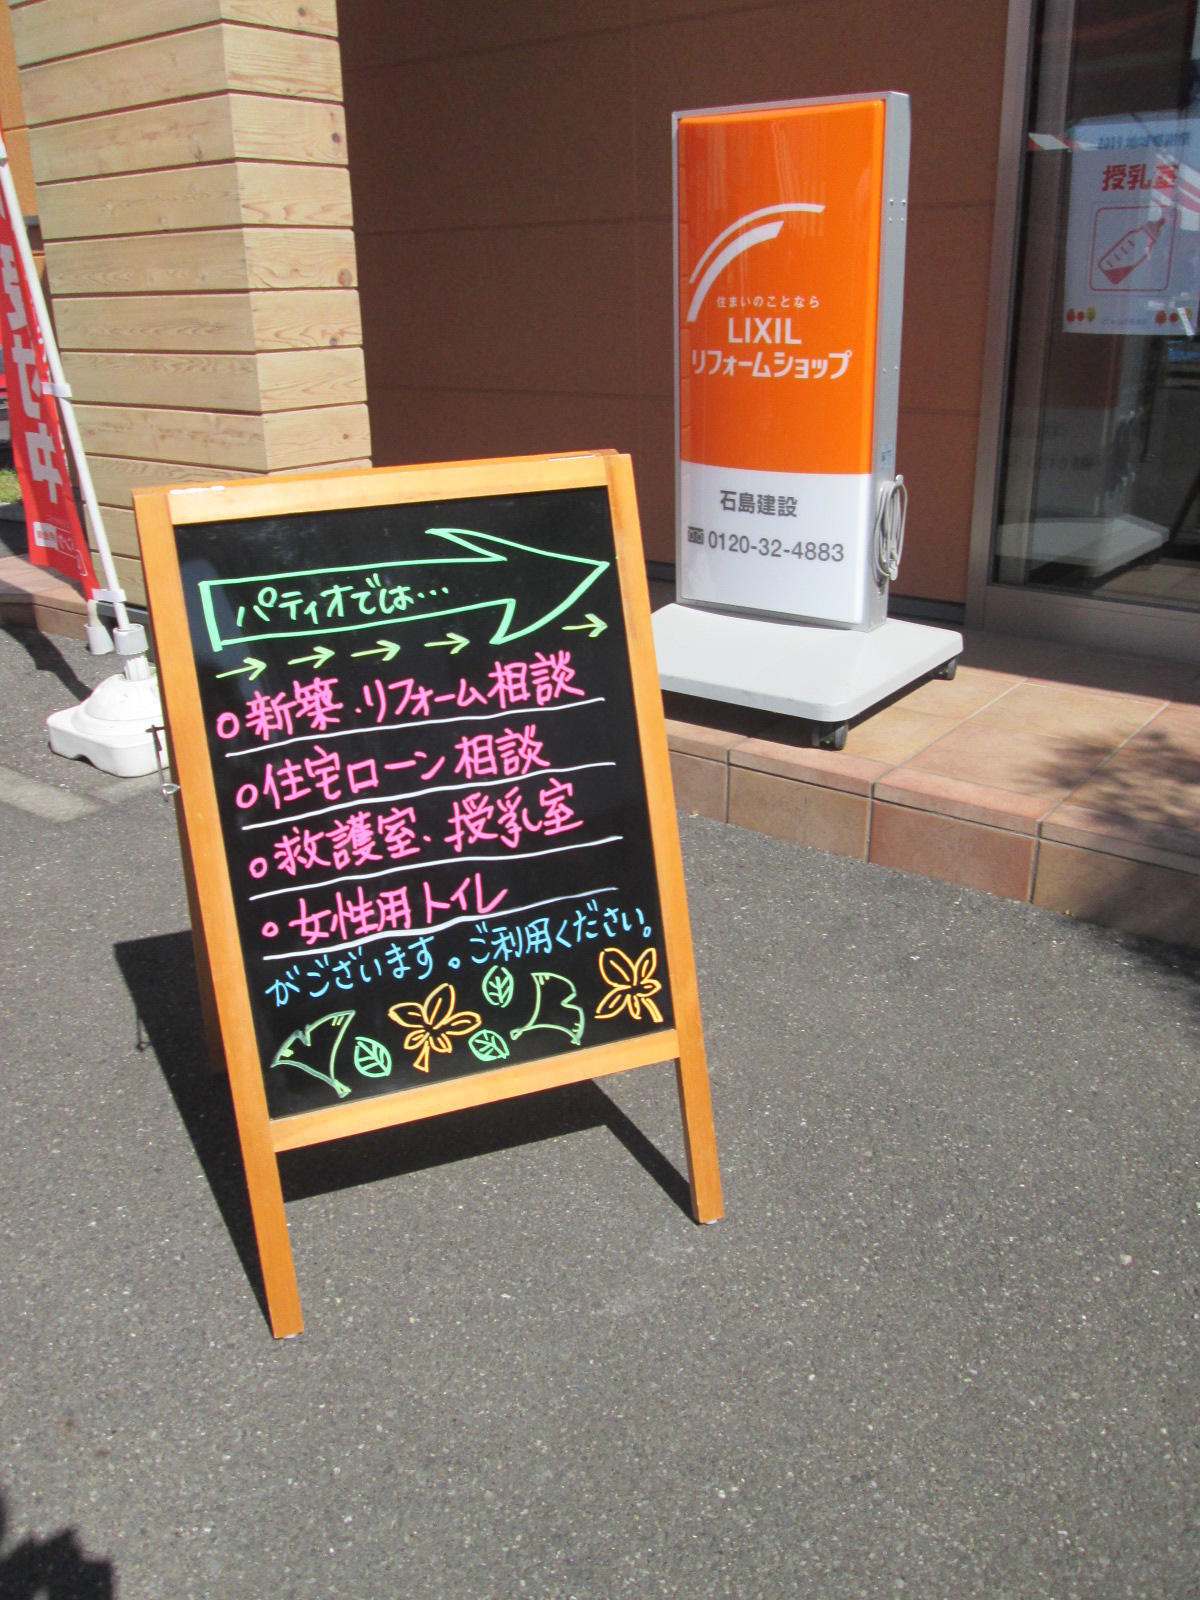 パティオでは…
→ → → → →
○新築・リフォーム相談
○住宅ローン相談
○救護室、授乳室
○女性用トイレ
がございます。ご利用ください。
住まいのことなら
LIXIL
リフォームショップ
石島建設
0120-32-4883
授乳室
受付中